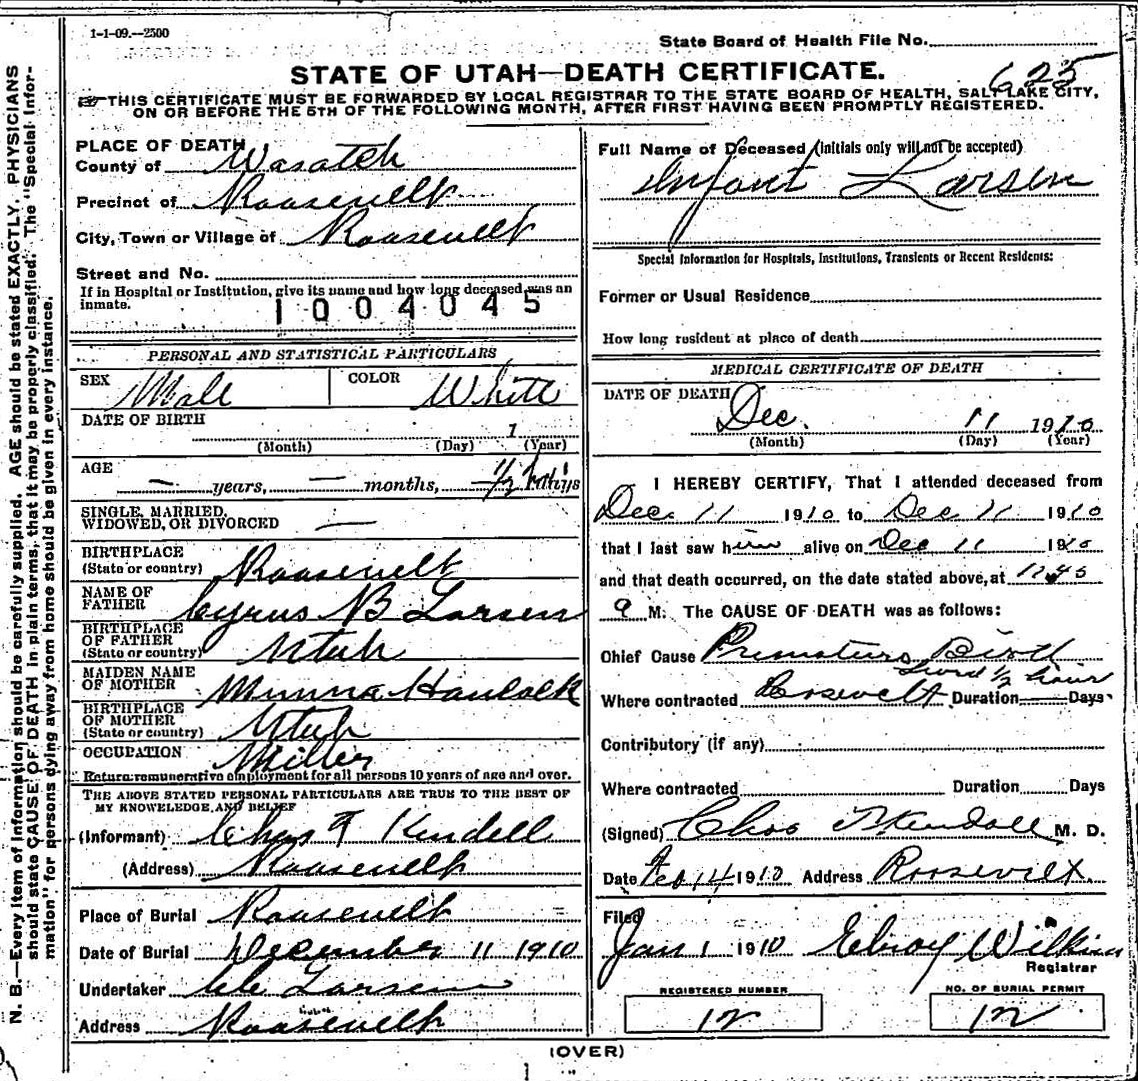 1-1-09.--2500
State Board of Health File No.
625
STATE OF UTAH—DEATH CERTIFICATE.
THIS CERTIFICATE MUST BE FORWARDED BY LOCAL REGISTRAR TO THE STATE BOARD OF HEALTH, SALT LAKE CITY,
ON OR BEFORE THE 5TH OF THE FOLLOWING MONTH, AFTER FIRST HAVING BEEN PROMPTLY REGISTERED.
PLACE OF DEATH
County of Wasatch
Precinct of Roosevelt
City, Town or Village of Roosevelt
Street and No.
If in Hospital or Institution, give its name and how long deceased was an
inmate.
1004045
PERSONAL AND STATISTICAL PARTICULARS
SEX Male COLOR White
DATE OF BIRTH
1
(Month) (Day) (Year)
AGE
— years, — months, — 1/2 days
SINGLE, MARRIED,
WIDOWED, OR DIVORCED —
BIRTHPLACE
(State or country) Roosevelt
NAME OF
FATHER Cyrus B Larsen
BIRTHPLACE
OF FATHER
(State or country) Utah
MAIDEN NAME
OF MOTHER
BIRTHPLACE
OF MOTHER
(State or country) Utah
OCCUPATION Miller
Return remunerative employment for all persons 10 years of age and over.
THE ABOVE STATED PERSONAL PARTICULARS ARE TRUE TO THE BEST OF
MY KNOWLEDGE AND BELIEF
(Informant) Chas T Kendell
(Address) Roosevelt
Place of Burial Roosevelt
Date of Burial December 11 1910
Undertaker Larsen
Address Roosevelt
Full Name of Deceased (initials only will not be accepted)
Infant Larsen
Special Information for Hospitals, Institutions, Transients or Recent Residents:
Former or Usual Residence
How long resident at place of death
MEDICAL CERTIFICATE OF DEATH
DATE OF DEATH
Dec. 11 1910
(Month) (Day) (Year)
I HEREBY CERTIFY, That I attended deceased from
Dec 11 1910 to Dec 11 1910
that I last saw him alive on Dec 11 1910
and that death occurred, on the date stated above, at 12.45
a M. The CAUSE OF DEATH was as follows:
Chief Cause Premature Birth
Lived 1/2 hour
Where contracted Rosevelt Duration Days
Contributory (if any)
Where contracted Duration Days
(Signed) Chas T Kendall M. D.
Date Feb 14 1910 Address Roosevelt
Filed
Jan 1 1910 Elroy Wilkins
Registrar
REGISTERED NUMBER
12
NO. OF BURIAL PERMIT
12
(OVER)
N. B.—Every item of information should be carefully supplied. AGE should be stated EXACTLY. PHYSICIANS
should state CAUSE OF DEATH in plain terms, that it may be properly classified. The "Special Infor-
mation" for persons dying away from home should be given in every instance.